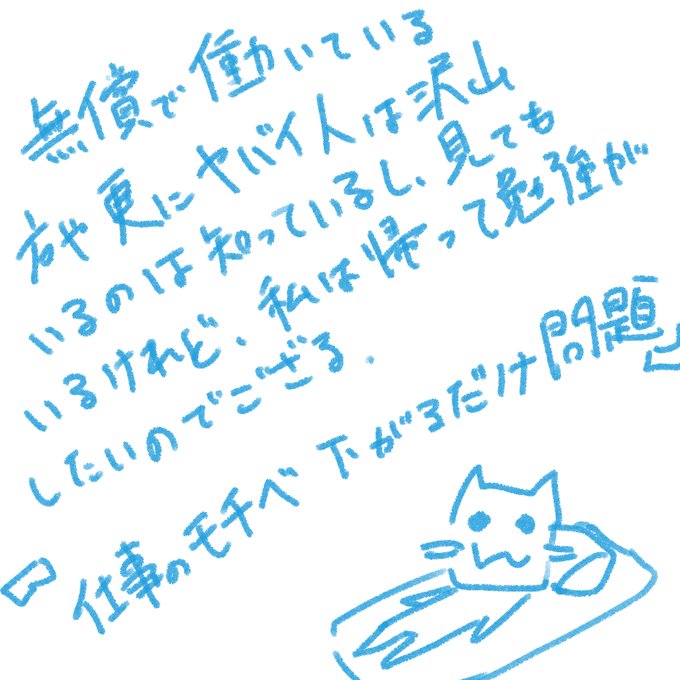 無償で働いている
或や更にヤバイ人は沢山
いるのは知っているし、見ても
いるけれど、私は帰って勉強が
したいのでござる.
「仕事のモチベ下がるだけ問題」